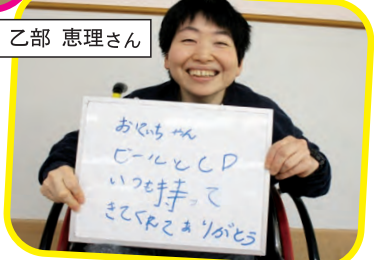 乙部 恵理さん
おにいちゃん
ビールとCD
いつも持って
きてくれてありがとう